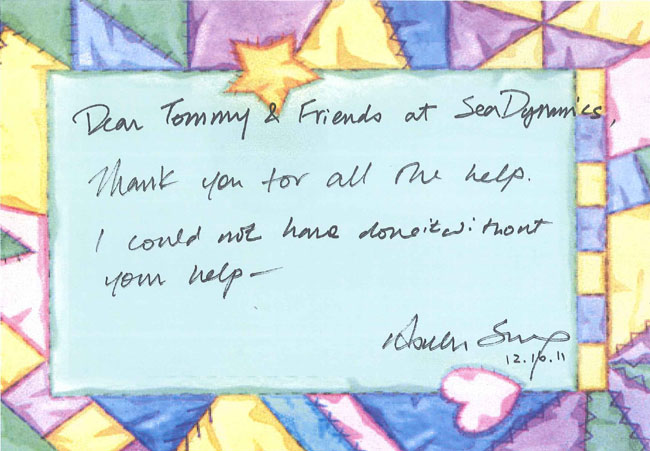 Dear Tommy & Friends at SeaDynamics,
Thank you for all the help.
I could not have done it without
your help –
12.10.11